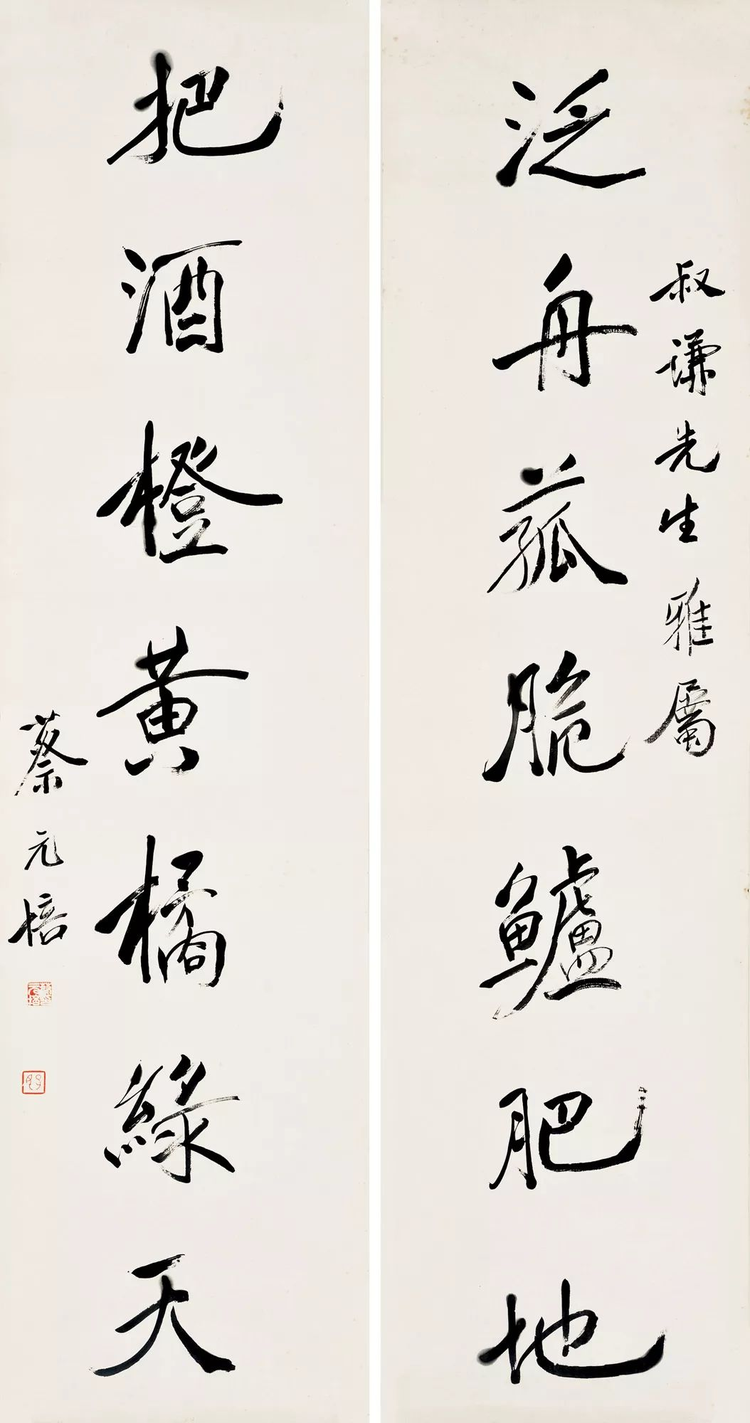 叔谦先生雅屬
泛舟菰脆鱸肥地
把酒橙黄橘綠天
蔡元培